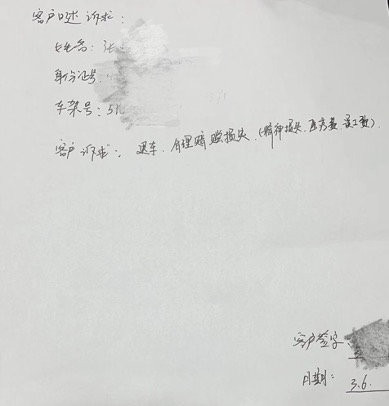 客户口述诉求:
姓名: 张
身份证号:
车架号: 51
客户诉求: 退车、合理赔赔损失、(精神损失、医疗费、误工费)、
客户签字:
日期: 3.6.